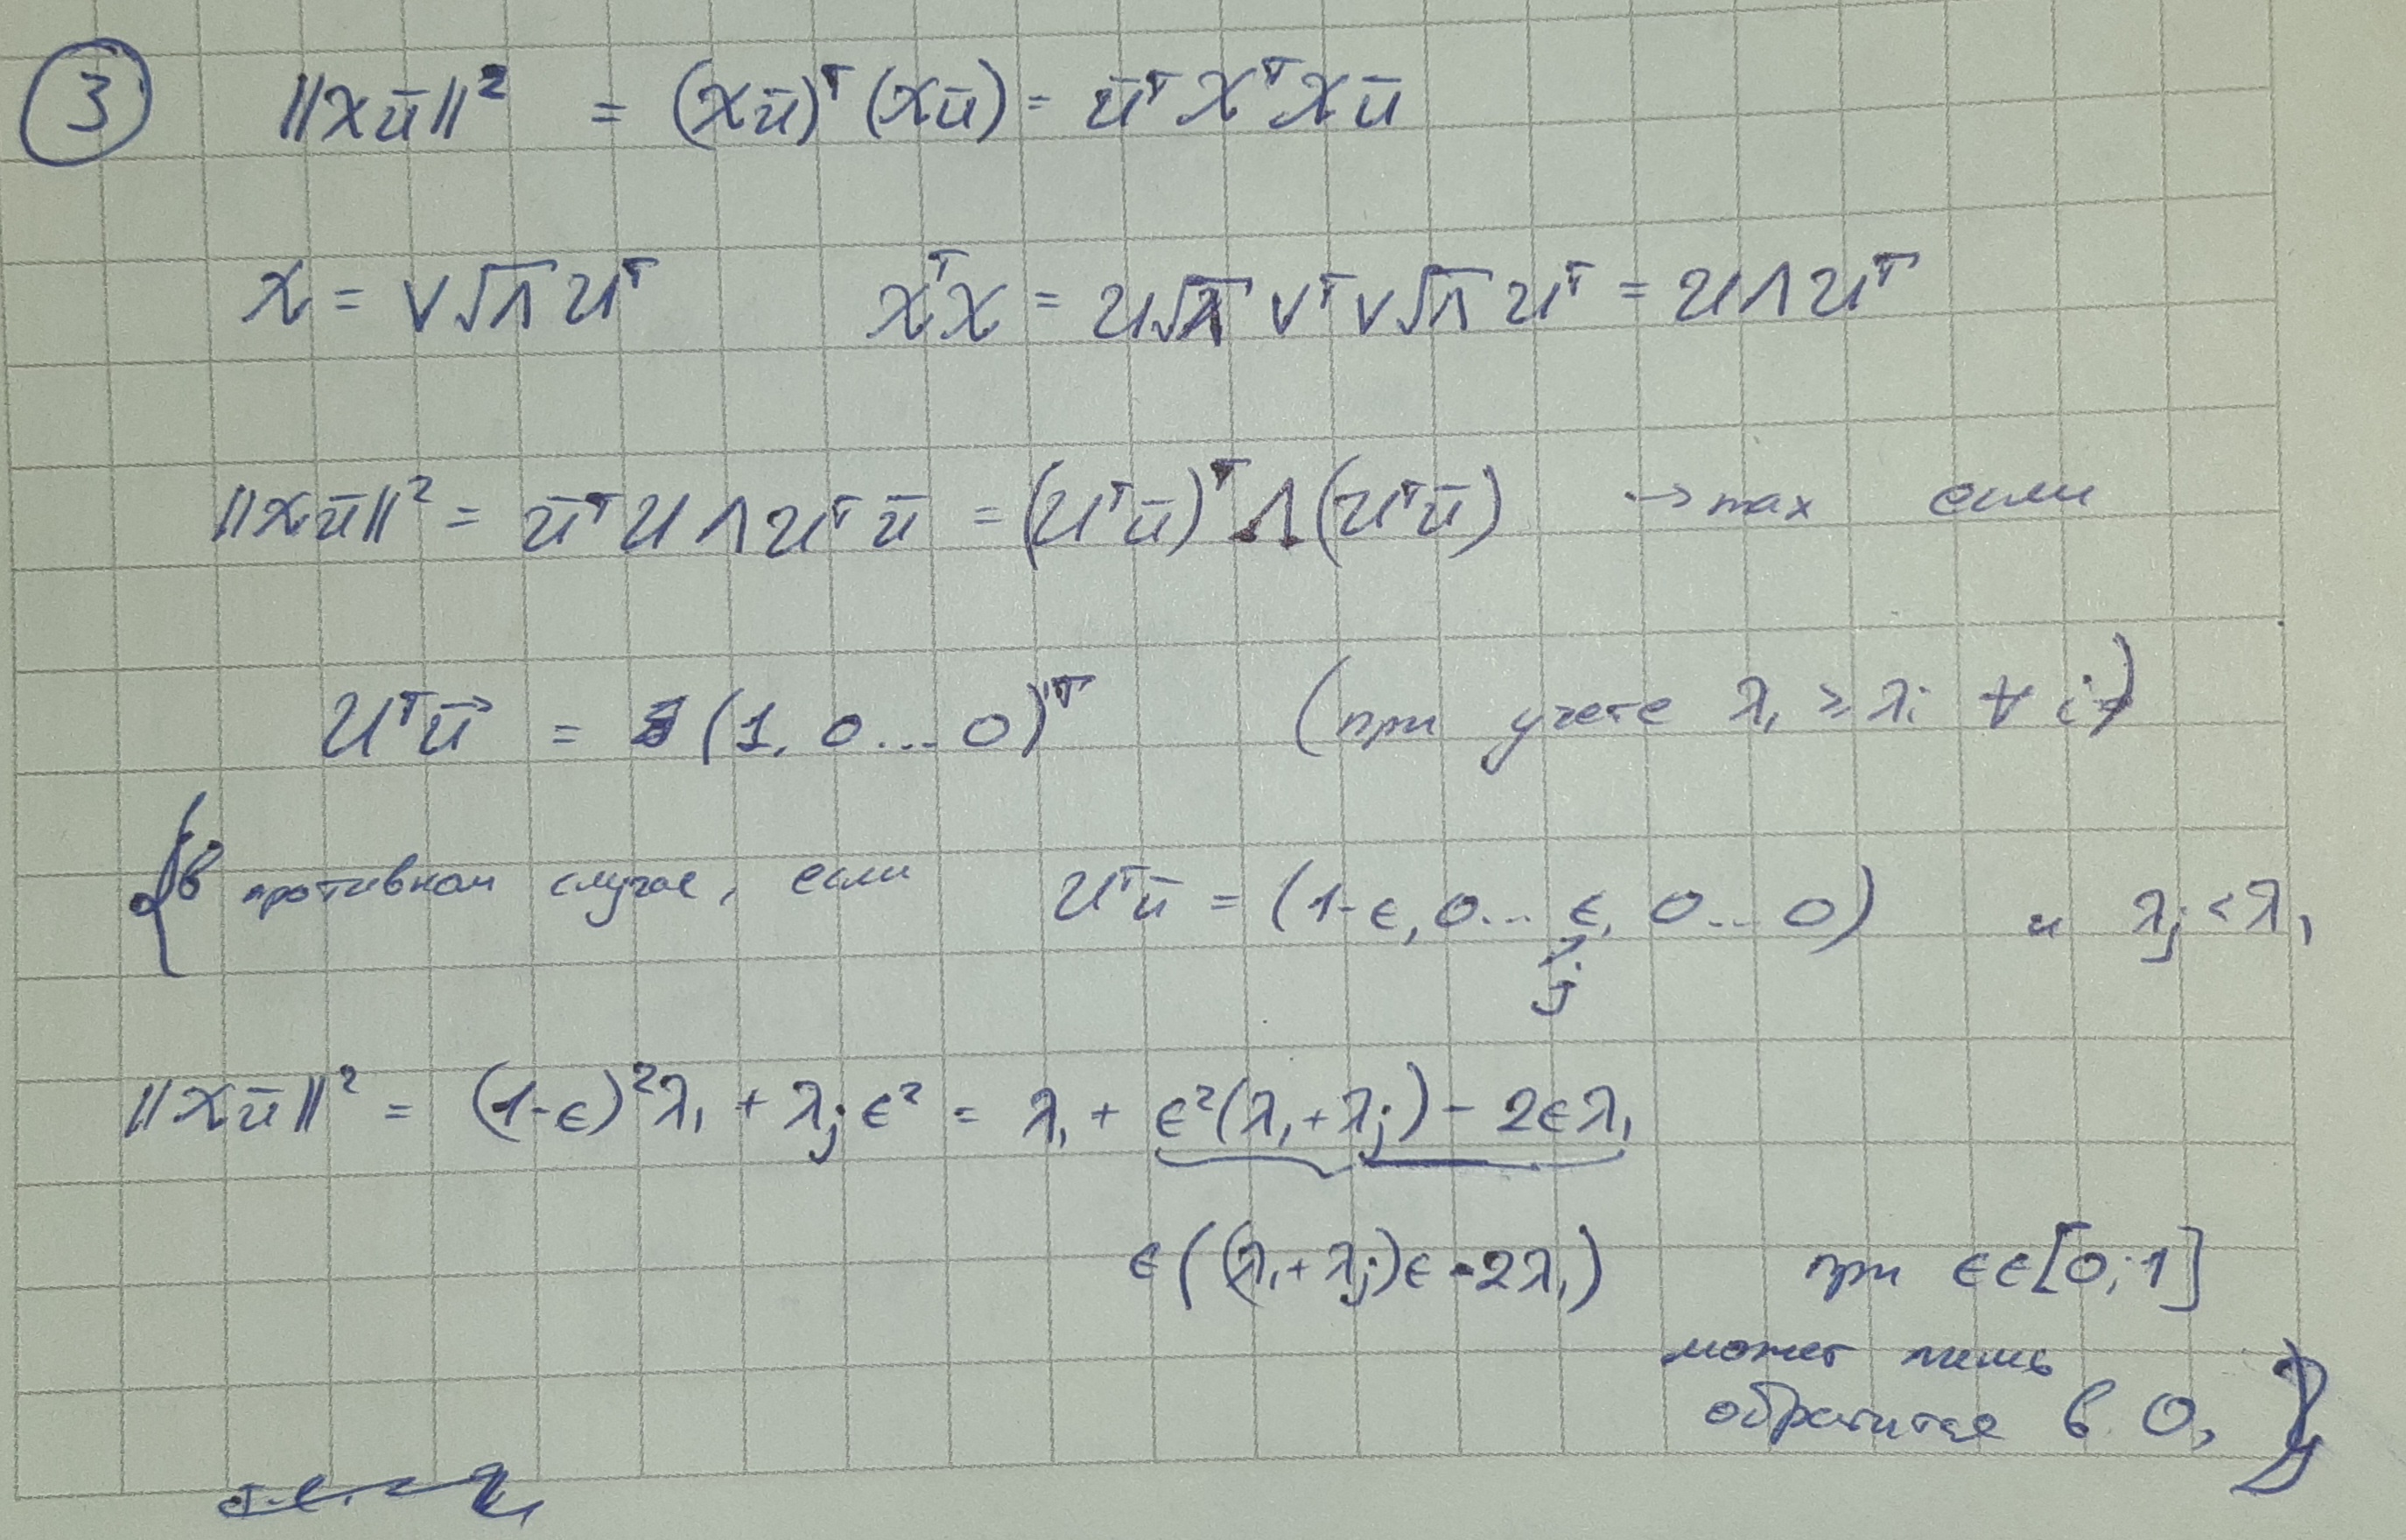 ③ ||Xū||² = (Xū)ᵀ(Xū) = ūᵀXᵀXū
X = V√Λ Uᵀ XᵀX = U√Λ VᵀV√Λ Uᵀ = UΛUᵀ
||Xū||² = ūᵀUΛUᵀū = (Uᵀū)ᵀ Λ (Uᵀū) → max если
Uᵀū = (1, 0 ... 0)ᵀ (при учете λ₁ ≥ λᵢ ∀ i)
{в противном случае, если Uᵀū = (1-ϵ, 0 ... ϵ, 0 ... 0) и λⱼ < λ₁
j
||Xū||² = (1-ϵ)²λ₁ + λⱼϵ² = λ₁ + ϵ²(λ₁+λⱼ) - 2ϵλ₁
ϵ((λ₁+λⱼ)ϵ - 2λ₁) при ϵ∈[0;1]
может лишь
обратится в 0, }